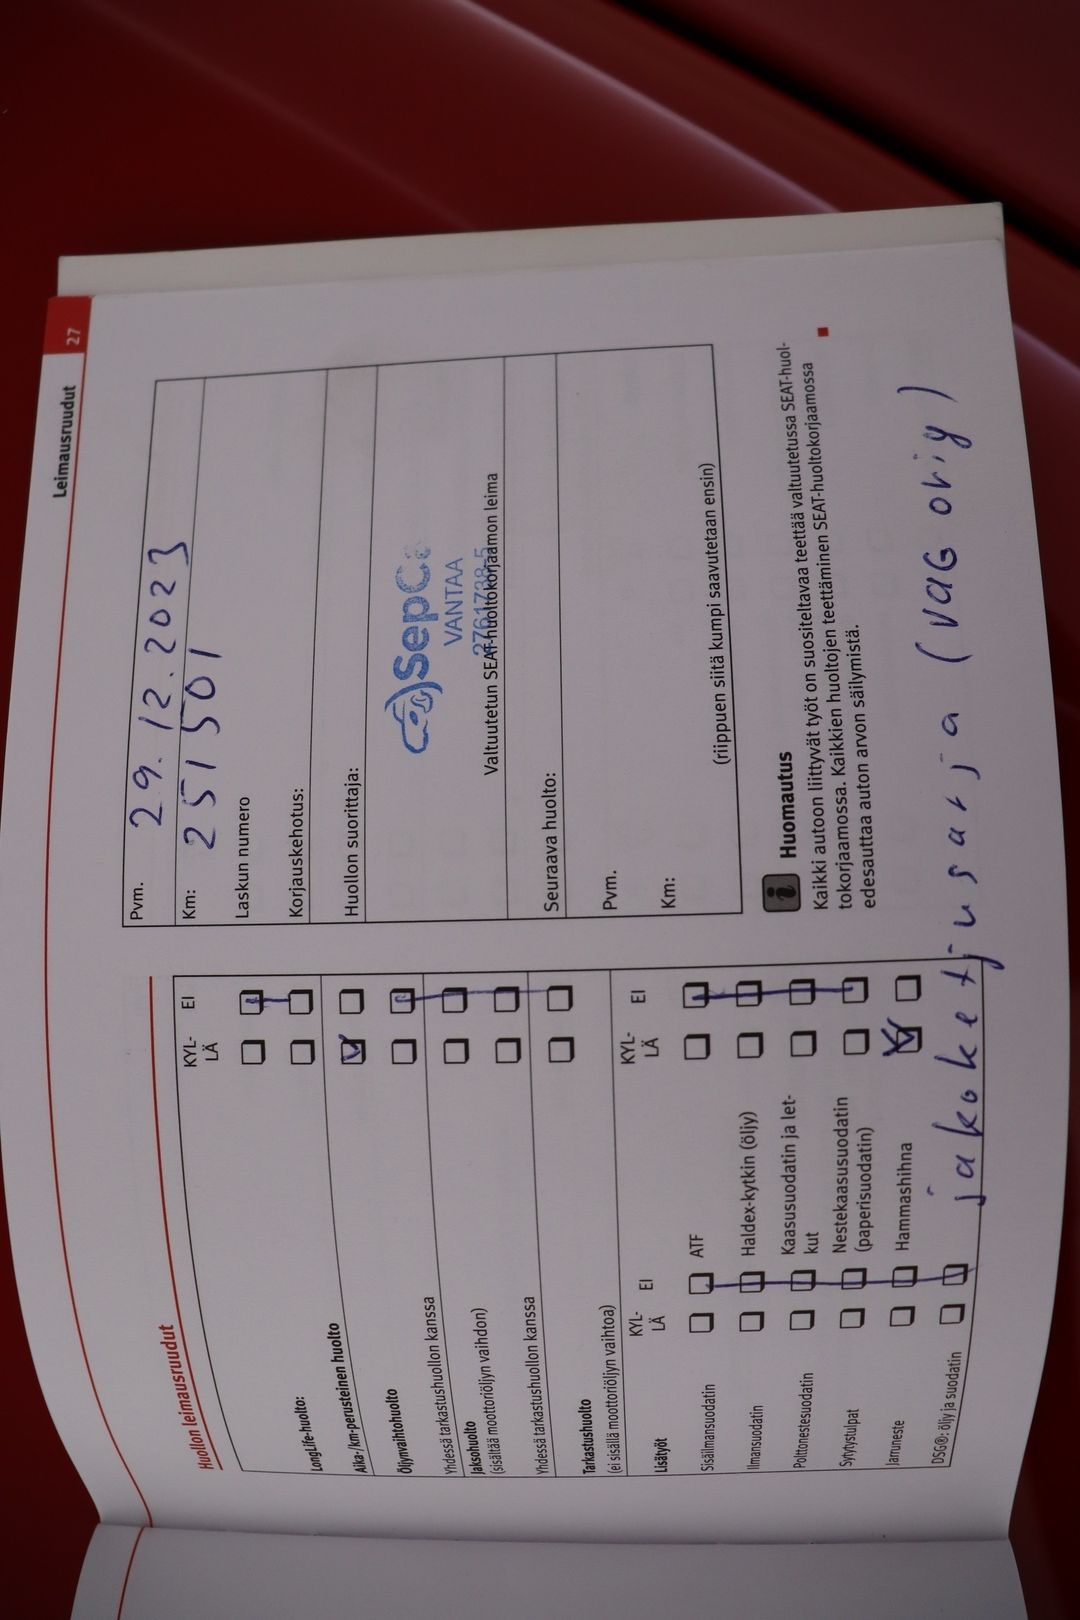 Leimausruudut 27
Huollon leimausruudut
KYL-
LÄ
EI
LongLife-huolto:
Aika-/km-perusteinen huolto
Öljynvaihtohuolto
Yhdessä tarkastushuollon kanssa
Jaksohuolto
(sisältää moottoriöljyn vaihdon)
Yhdessä tarkastushuollon kanssa
Tarkastushuolto
(ei sisällä moottoriöljyn vaihtoa)
Lisätyöt
KYL-
LÄ
EI
KYL-
LÄ
EI
Sisäilmansuodatin
ATF
Ilmansuodatin
Haldex-kytkin (öljy)
Polttonestesuodatin
Kaasusuodatin ja let-
kut
Sytytystulpat
Nestekaasusuodatin
(paperisuodatin)
Jarruneste
Hammashihna
DSG®: öljy ja suodatin
jakoketjusarja (VAG orig)
Pvm. 29.12.2023
Km: 251501
Laskun numero
Korjauskehotus:
Huollon suorittaja:
VANTAA
2761738-5
Valtuutetun SEAT-huoltokorjaamon leima
Seuraava huolto:
Pvm.
Km:
(riippuen siitä kumpi saavutetaan ensin)
i Huomautus
Kaikki autoon liittyvät työt on suositeltavaa teettää valtuutetussa SEAT-huol-
tokorjaamossa. Kaikkien huoltojen teettäminen SEAT-huoltokorjaamossa
edesauttaa auton arvon säilymistä.